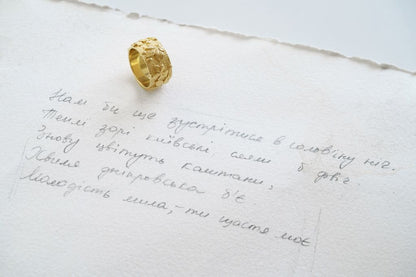 Нам би ще зустрітися в солов'їну ніч.
Теплі зорі київські,
Знову цвітуть каштани,
Хвиля дніпровська б'є.
Молодість мила, - ти щастя моє